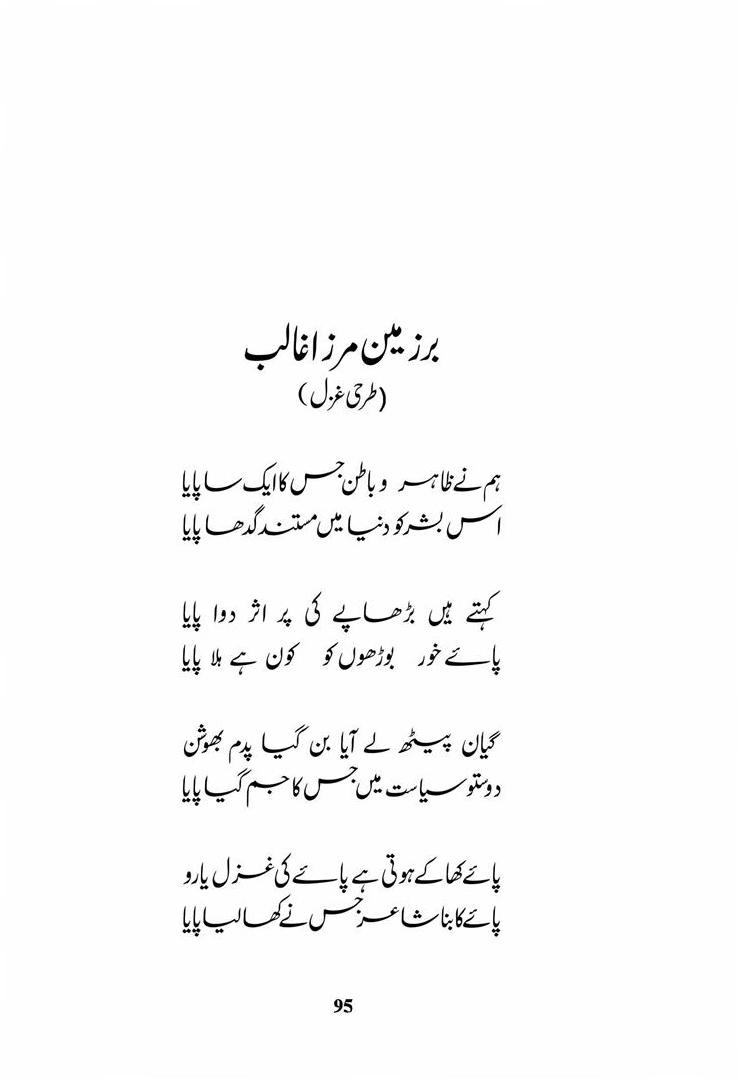 برزمین مرزا غالب
(طرحی غزل)
ہم نے ظاہر و باطن جس کا ایک سا پایا
اس بشر کو دنیا میں مستند گدھا پایا
کہتے ہیں بڑھاپے کی پر اثر دوا پایا
پائے خور بوڑھوں کو کون ہے ہلا پایا
گیان پیٹھ لے آیا بن گیا پدم بھوشن
دوستو سیاست میں جس کا جم گیا پایا
پائے کھا کے ہوتی ہے پائے کی غزل یارو
پائے کا بنا شاعر جس نے کھا لیا پایا
95